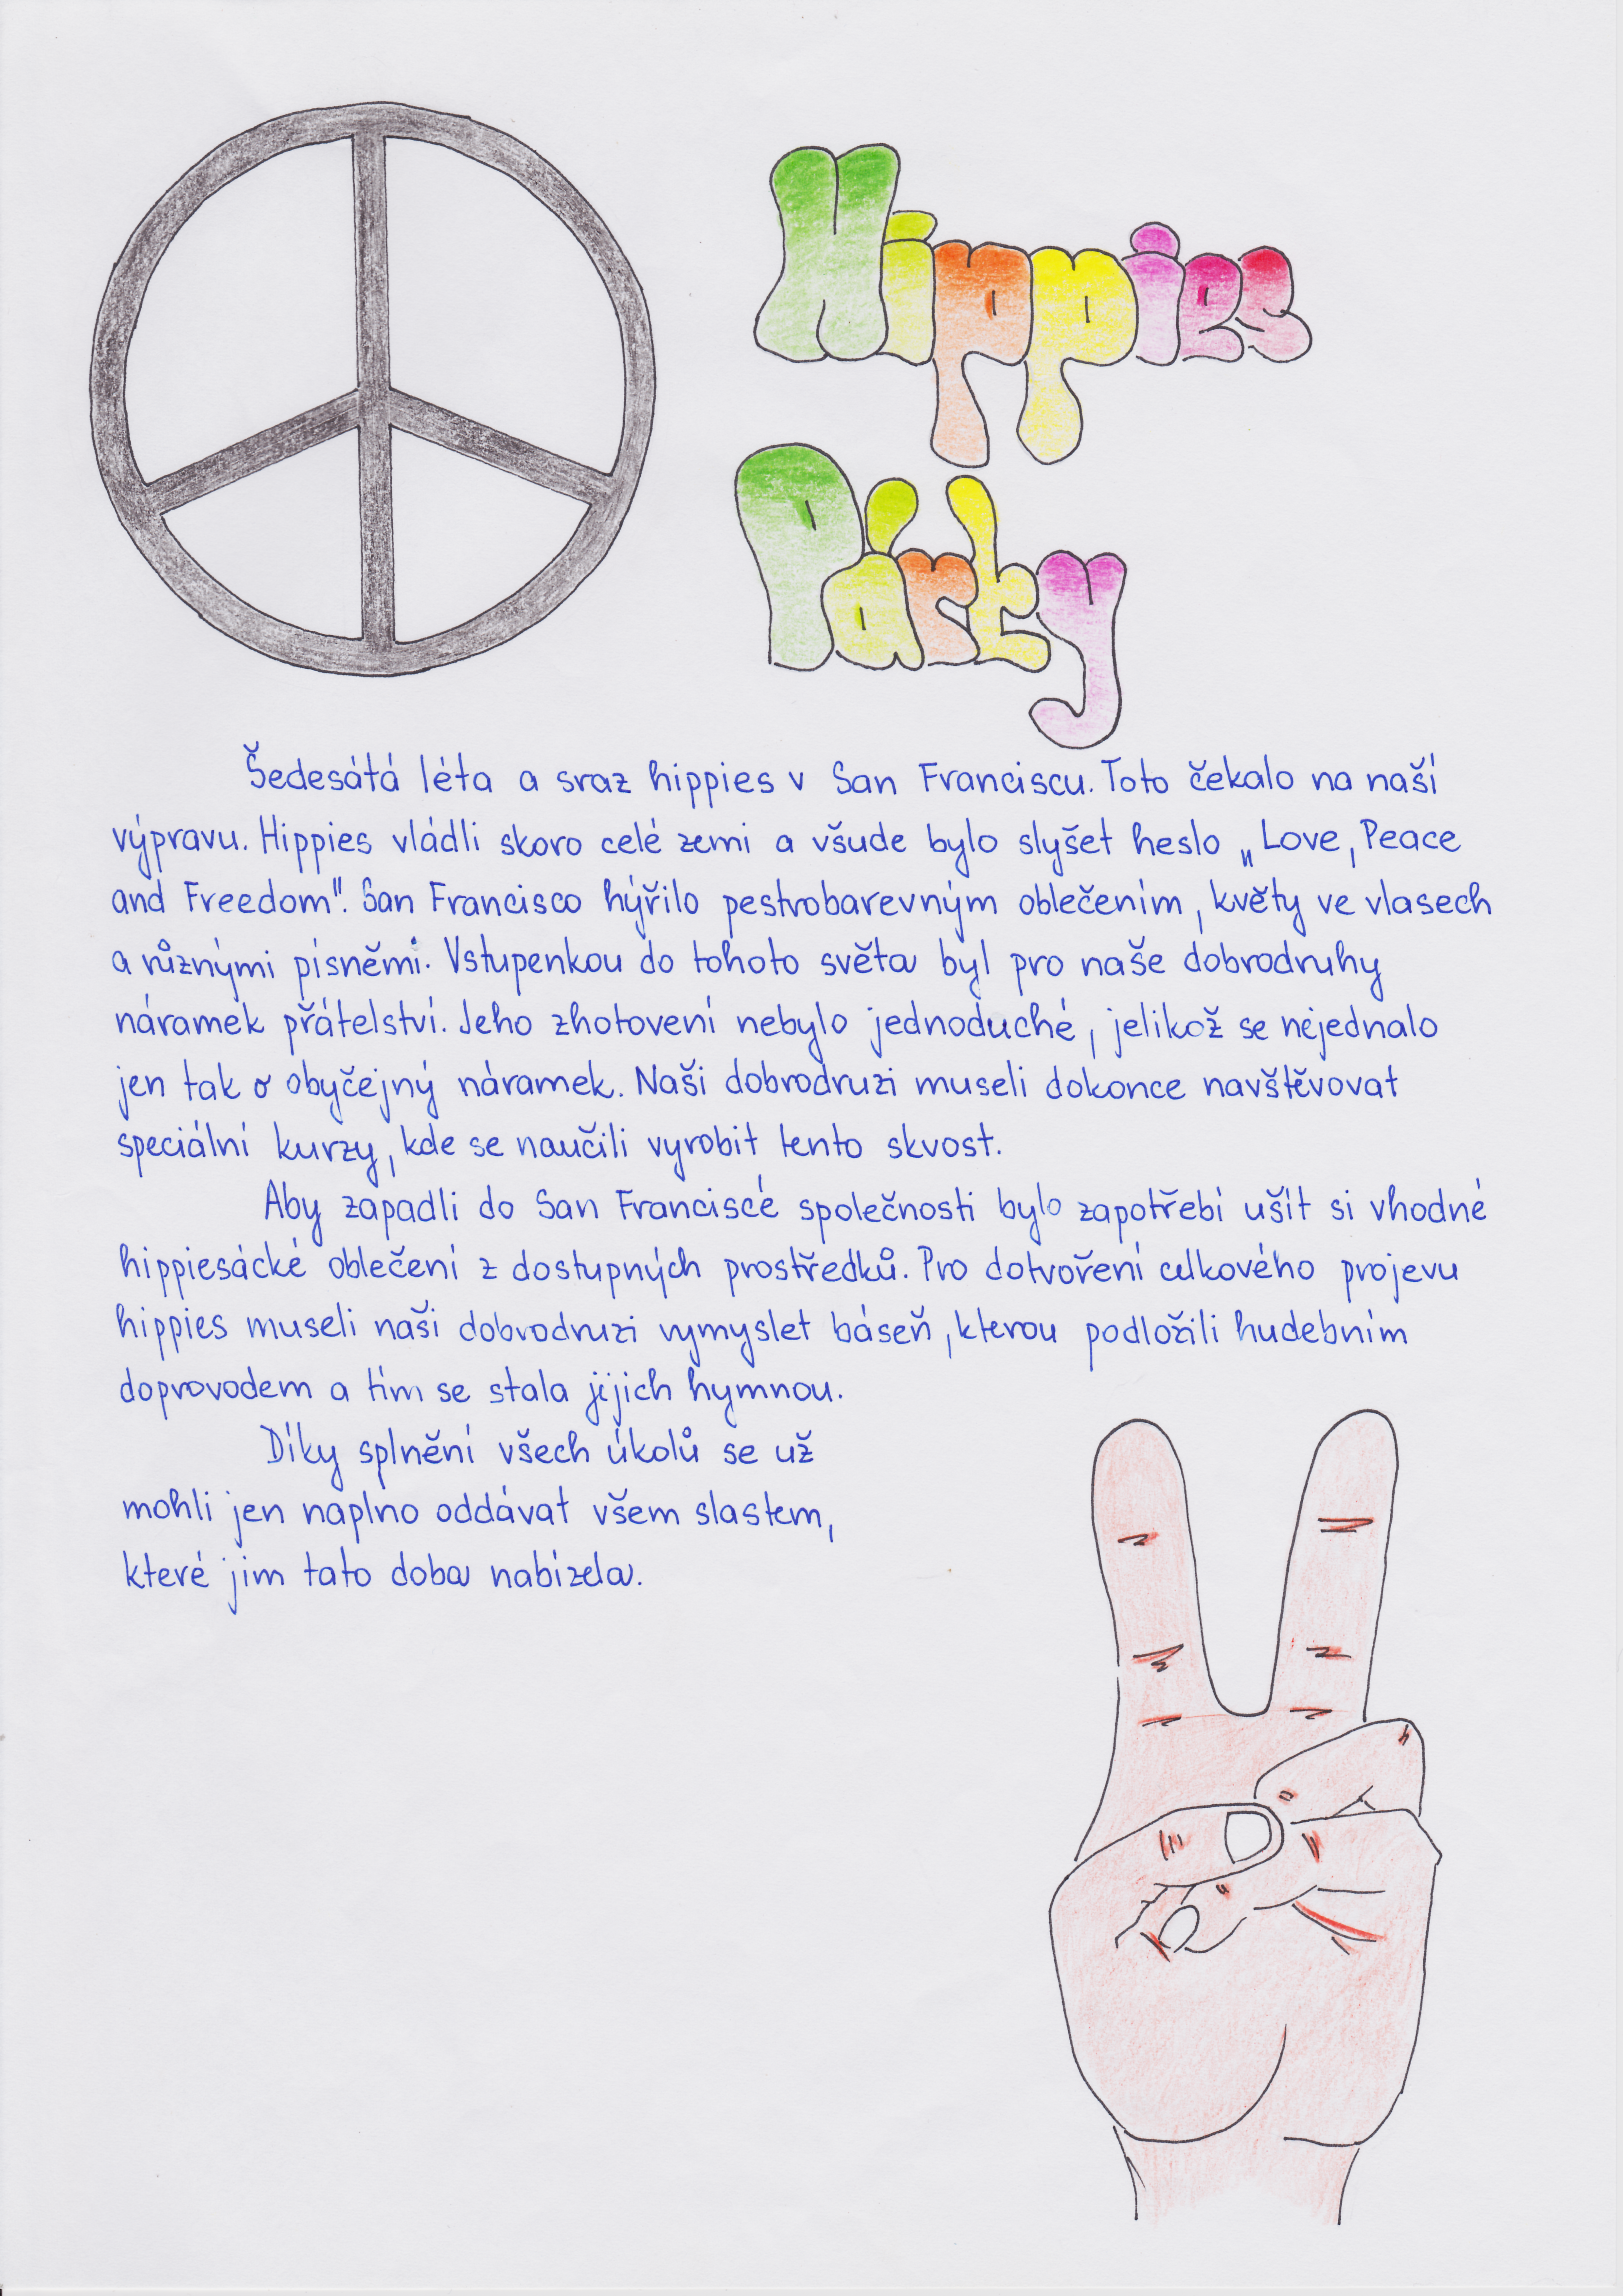 Hippies
Párty
Šedesátá léta a sraz hippies v San Franciscu. Toto čekalo na naší
výpravu. Hippies vládli skoro celé zemi a všude bylo slyšet heslo „Love, Peace
and Freedom". San Francisco hýřilo pestrobarevným oblečením, květy ve vlasech
a různými písněmi. Vstupenkou do tohoto světa byl pro naše dobrodruhy
náramek přátelství. Jeho zhotovení nebylo jednoduché, jelikož se nejednalo
jen tak o obyčejný náramek. Naši dobrodruzi museli dokonce navštěvovat
speciální kurzy, kde se naučili vyrobit tento skvost.
Aby zapadli do San Franciscé společnosti bylo zapotřebí ušít si vhodné
hippiesácké oblečení z dostupných prostředků. Pro dotvoření celkového projevu
hippies museli naši dobrodruzi vymyslet báseň, kterou podložili hudebním
doprovodem a tím se stala jejich hymnou.
Díky splnění všech úkolů se už
mohli jen naplno oddávat všem slastem,
které jim tato doba nabízela.